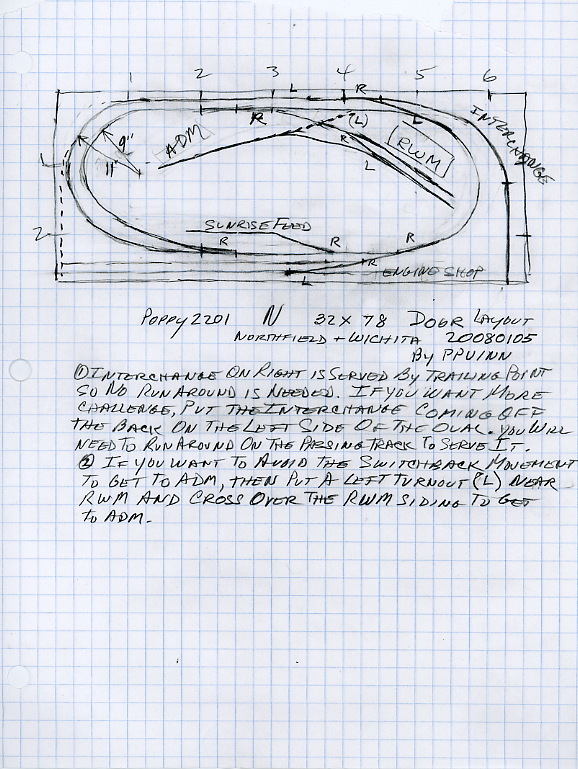 1 2 3 4 5 6
L R
INTERCHANGE
ADM R (L) L
R RWM
1 9" 11" L
2 SUNRISE FEED
R R R
R
L ENGINE SHOP
POPPY2201 N 32 X 78 DOOR LAYOUT
NORTHFIELD + WICHITA 20080105
BY PPUINN
① INTERCHANGE ON RIGHT IS SERVED BY TRAILING POINT
SO NO RUNAROUND IS NEEDED. IF YOU WANT MORE
CHALLENGE, PUT THE INTERCHANGE COMING OFF
THE BACK ON THE LEFT SIDE OF THE OVAL. YOU WILL
NEED TO RUNAROUND ON THE PASSING TRACK TO SERVE IT.
② IF YOU WANT TO AVOID THE SWITCHBACK MOVEMENT
TO GET TO ADM, THEN PUT A LEFT TURNOUT (L) NEAR
RWM AND CROSS OVER THE RWM SIDING TO GET
TO ADM.